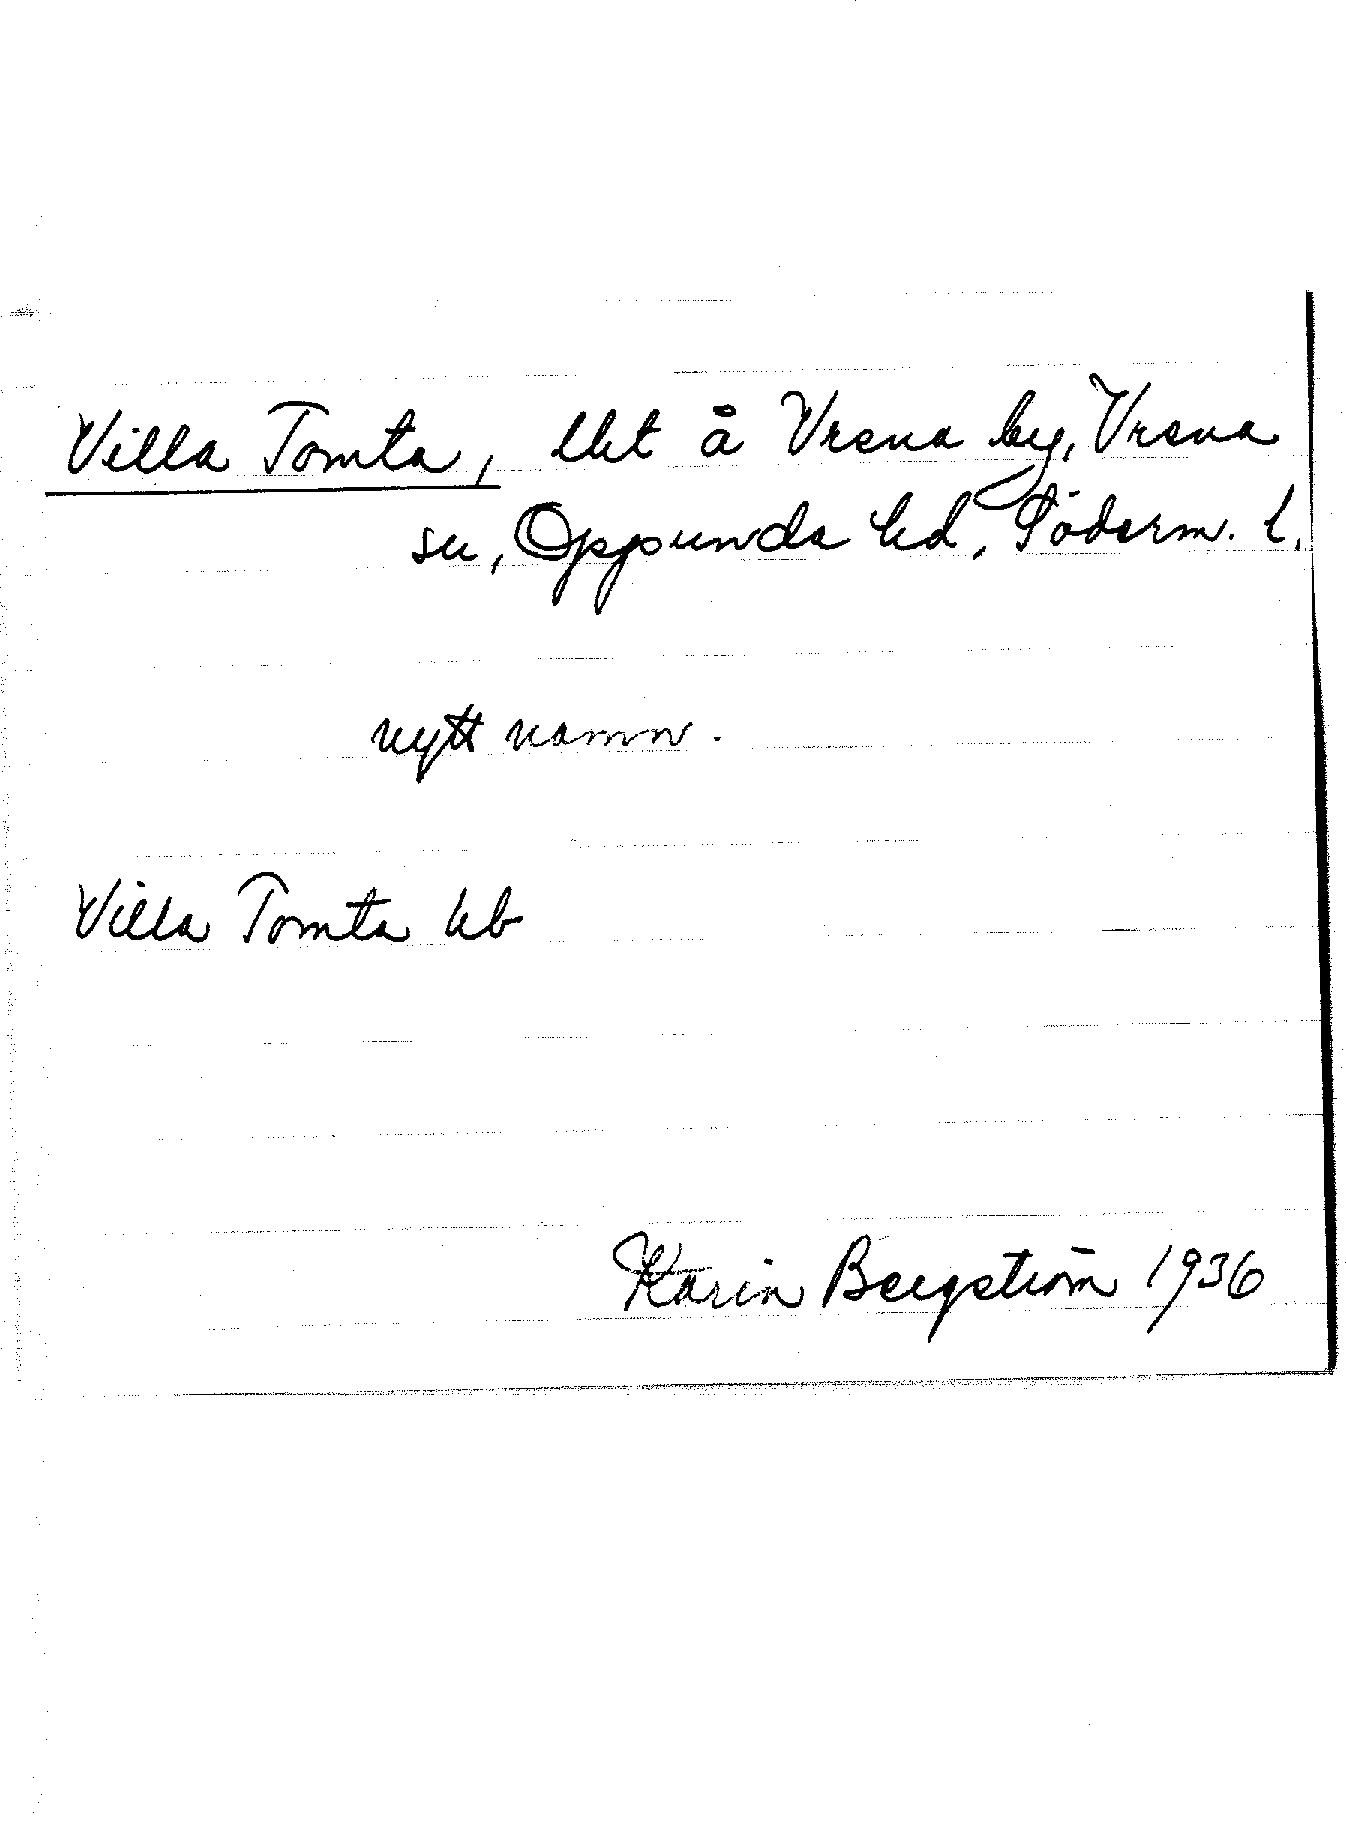 Villa Tomta, lht å Vrena by, Vrena
sn, Oppunda hd, Söderm. l.
nytt namn.
Villa Tomta hb
Karin Bergström 1936